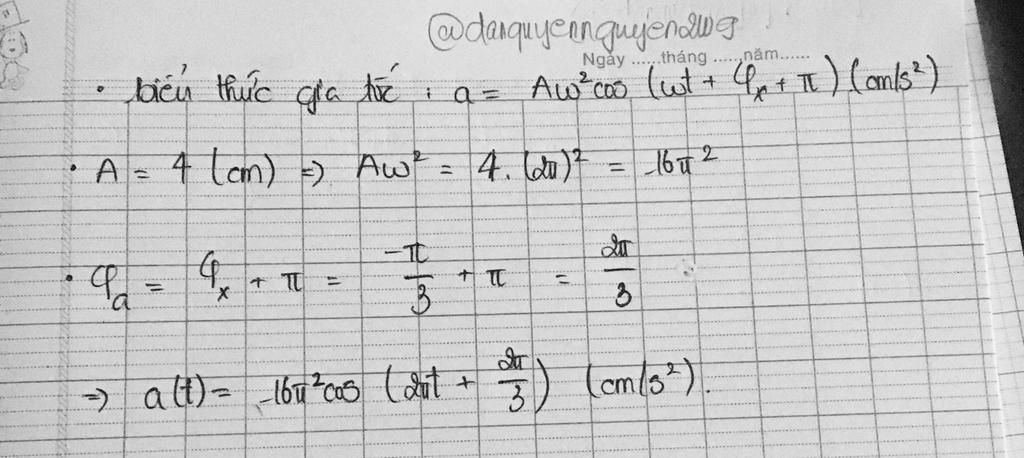 @danquyennguyen2109
Ngày ......tháng ......năm......
• biểu thức gia tốc : a = Aω² cos (ωt + φₓ + π) (cm/s²)
• A = 4 (cm) => Aω² = 4. (2π)² = 16π²
• φₐ = φₓ + π = -π/3 + π = 2π/3
=> a(t) = 16π² cos (2πt + 2π/3) (cm/s²).